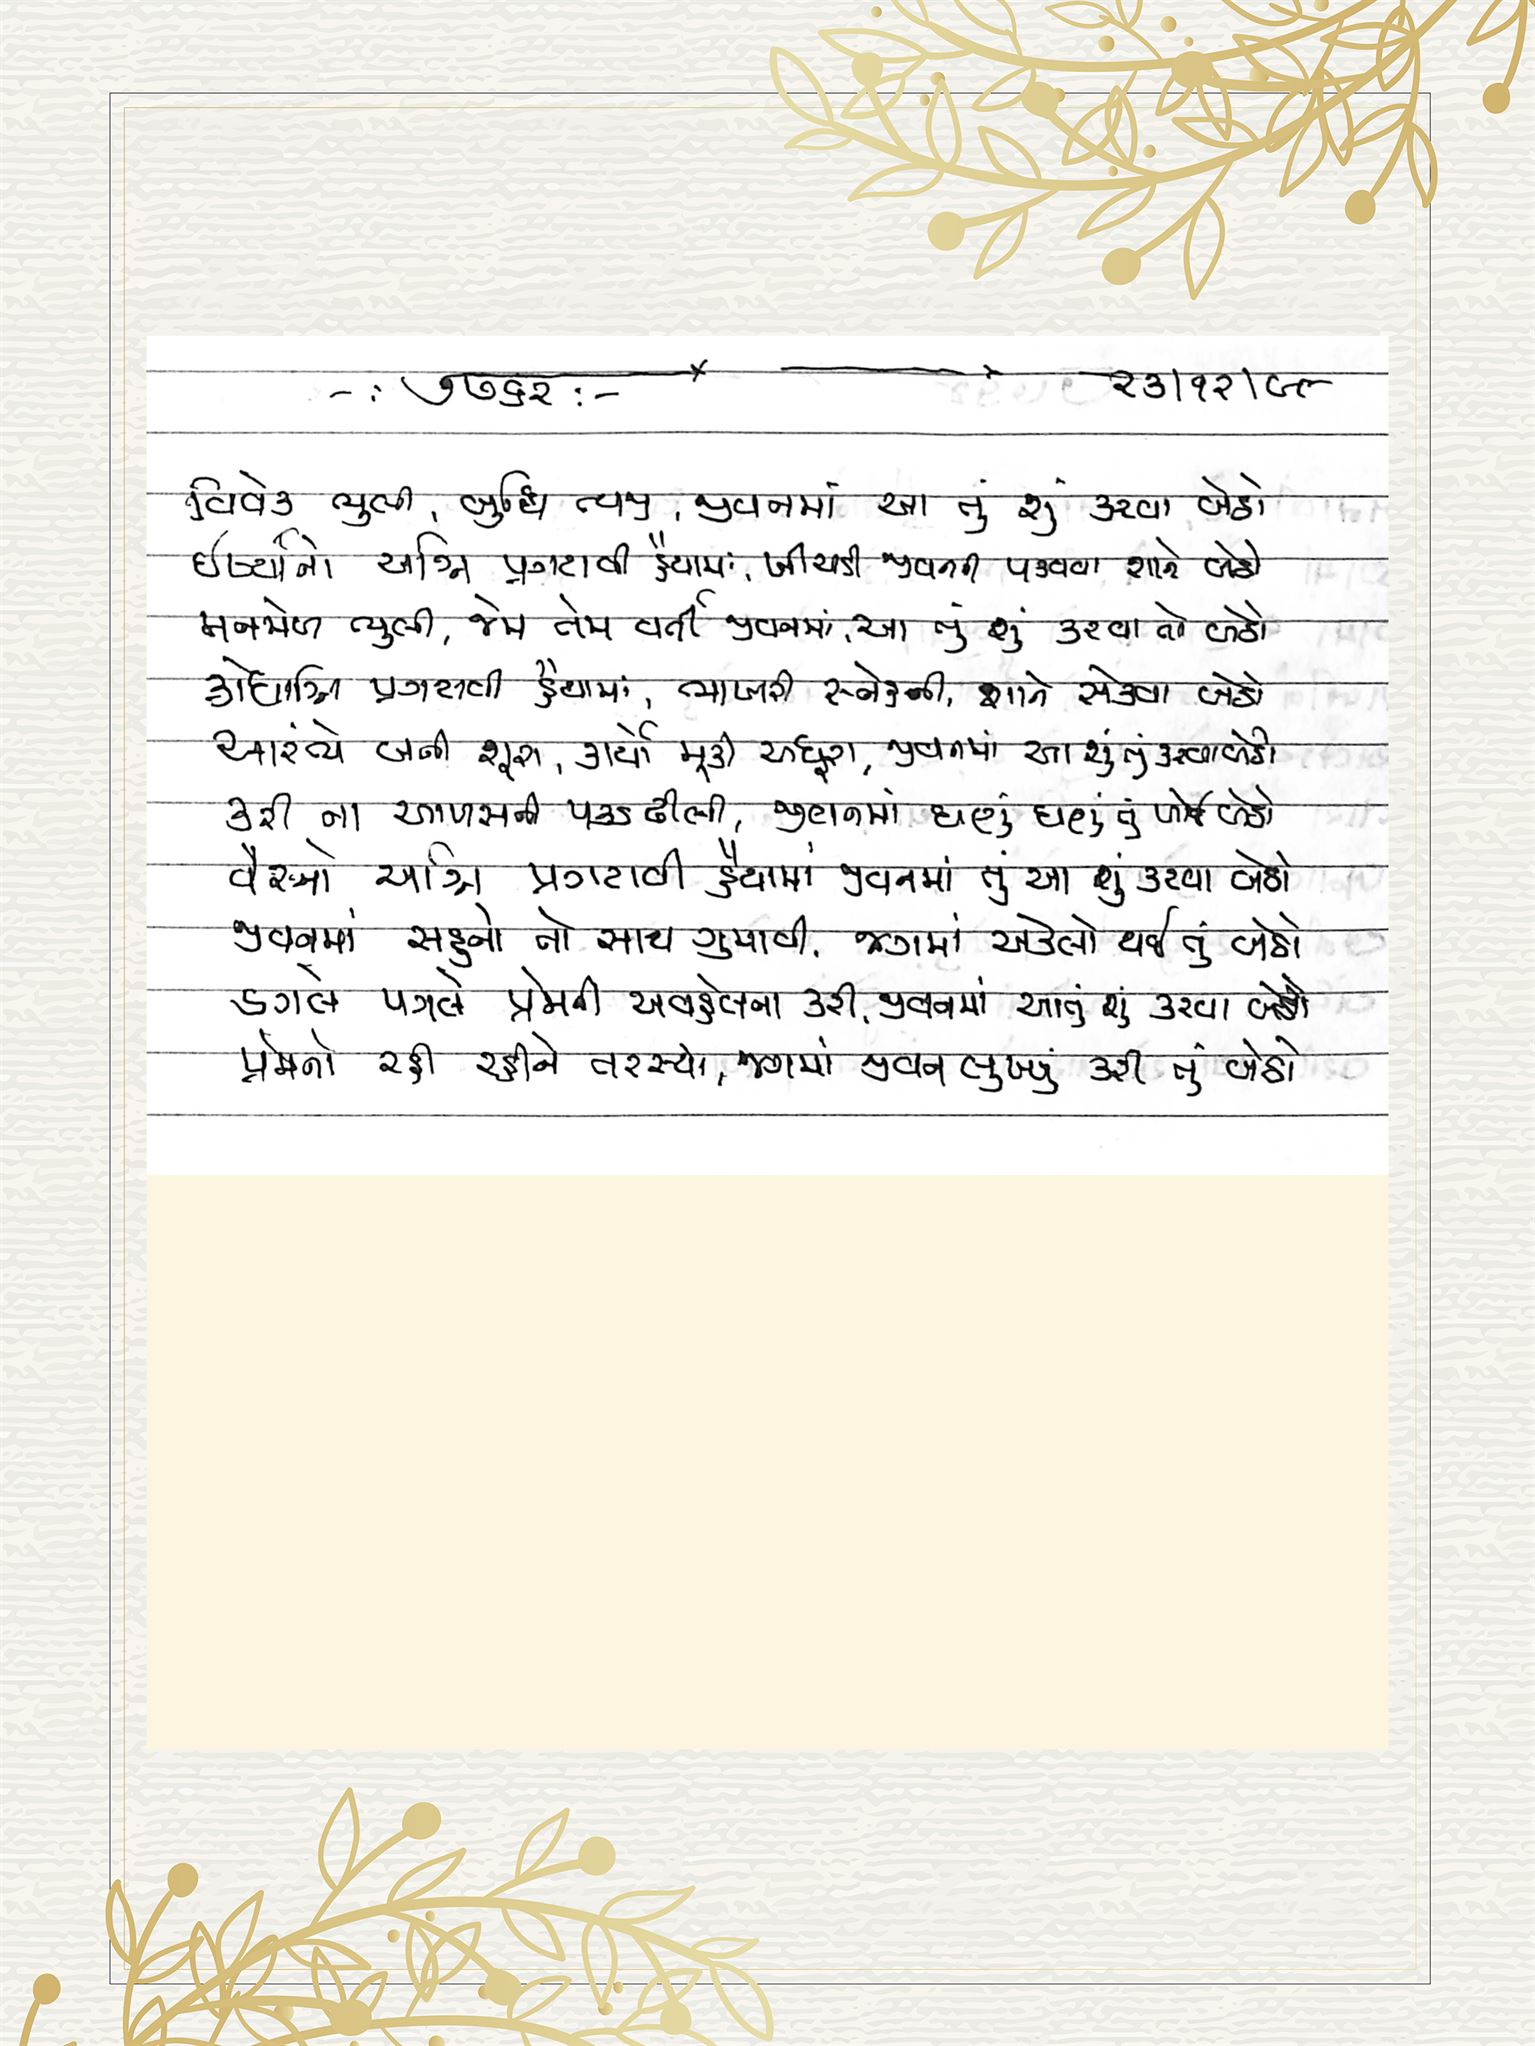 -: ૭૭૬૨ :- ૨૩/૧૨/૯૮
વિવેક ભુલી, બુધ્ધિ ત્યજી, જીવનમાં આ તું શું કરવા બેઠો
ઇર્ષ્યાનો અગ્નિ પ્રગટાવી હૈયામાં, ખીચડી જીવનની પકવવા શાને બેઠો
મનમેળ ભુલી, જેમ તેમ વર્તી જીવનમાં, આ તું શું કરવા તો બેઠો
ક્રોધાગ્નિ પ્રગટાવી હૈયામાં, ભાખરી સ્નેહની, શાને સેકવા બેઠો
આરંભે બની શૂરા, કાર્યો મૂકી અધૂરા, જીવનમાં આ શું તું કરવા બેઠો
કરી ના આળસની પકડ ઢીલી, જીવનમાં ઘણું ઘણું તું ખોઈ બેઠો
વૈરનો અગ્નિ પ્રગટાવી હૈયામાં જીવનમાં તું આ શું કરવા બેઠો
જીવનમાં સહુનો નો સાથ ગુમાવી, જગમાં એકલો થઈ તું બેઠો
ડગલે પગલે પ્રેમની અવહેલના કરી, જીવનમાં આ તું શું કરવા બેઠો
પ્રેમનો રહી રહીને તરસ્યો, જગમાં જીવન લુખ્ખું કરી તું બેઠો